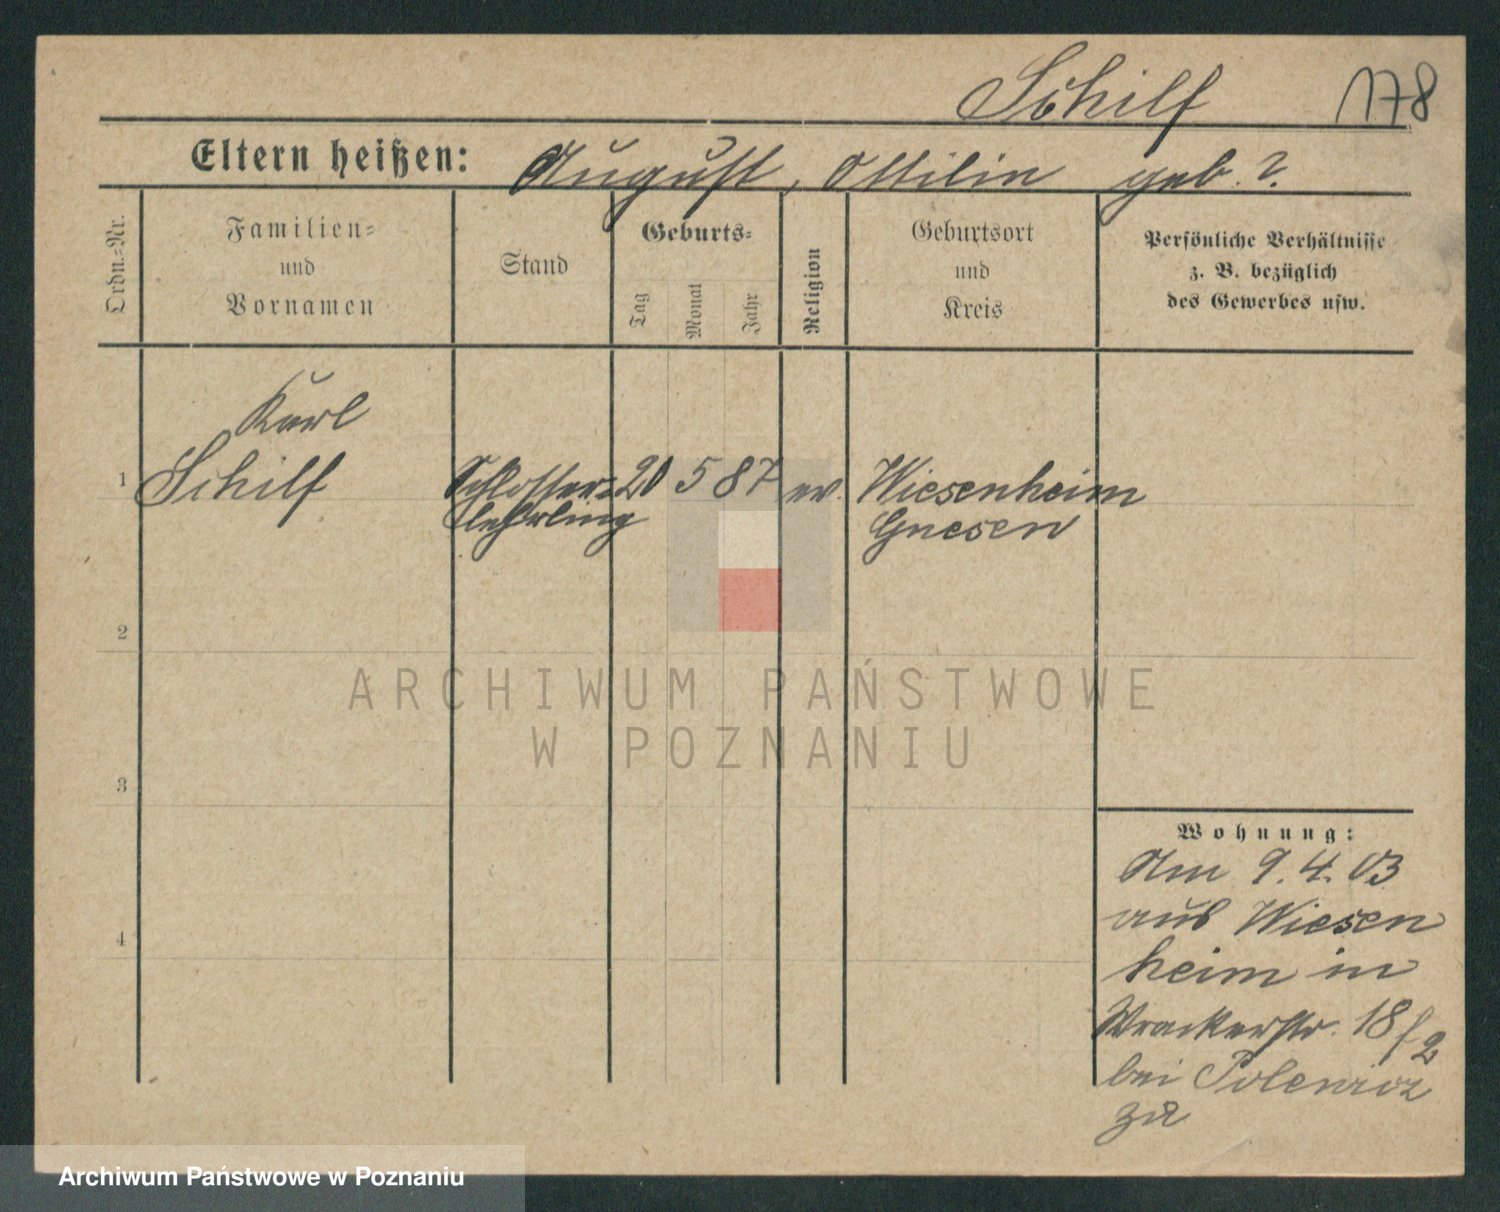 Schilf 178
Eltern heißen: August, Ottilie geb. ?.
Ordn.=Nr.
Familien=
und
Vornamen
Stand
Geburts=
Tag
Monat
Jahr
Religion
Geburtsort
und
Kreis
Persönliche Verhältnisse
z. B. bezüglich
des Gewerbes usw.
Karl
1 Schilf Schlosser= 20 5 87 ev. Wiesenheim
lehrling Gnesen
2
ARCHIWUM PAŃSTWOWE
W POZNANIU
3
Wohnung:
Am 9.4.03
aus Wiesen
heim in
18
4
bei
zu
Archiwum Państwowe w Poznaniu